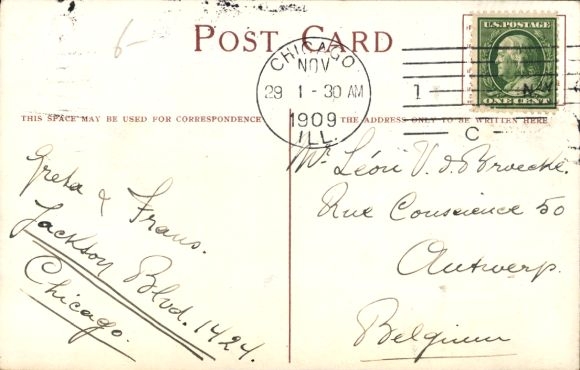 6-
POST CARD
CHICAGO
NOV
29 1-30 AM
1909
ILL.
1
N.Y.
C
U.S. POSTAGE
ONE CENT
THIS SPACE MAY BE USED FOR CORRESPONDENCE
THE ADDRESS ONLY TO BE WRITTEN HERE
Greta & Frans.
Jackson Blvd. 1424.
Chicago.
Mr. Léon V. d. Broecke.
Rue Conscience 50
Antwerp.
Belgium